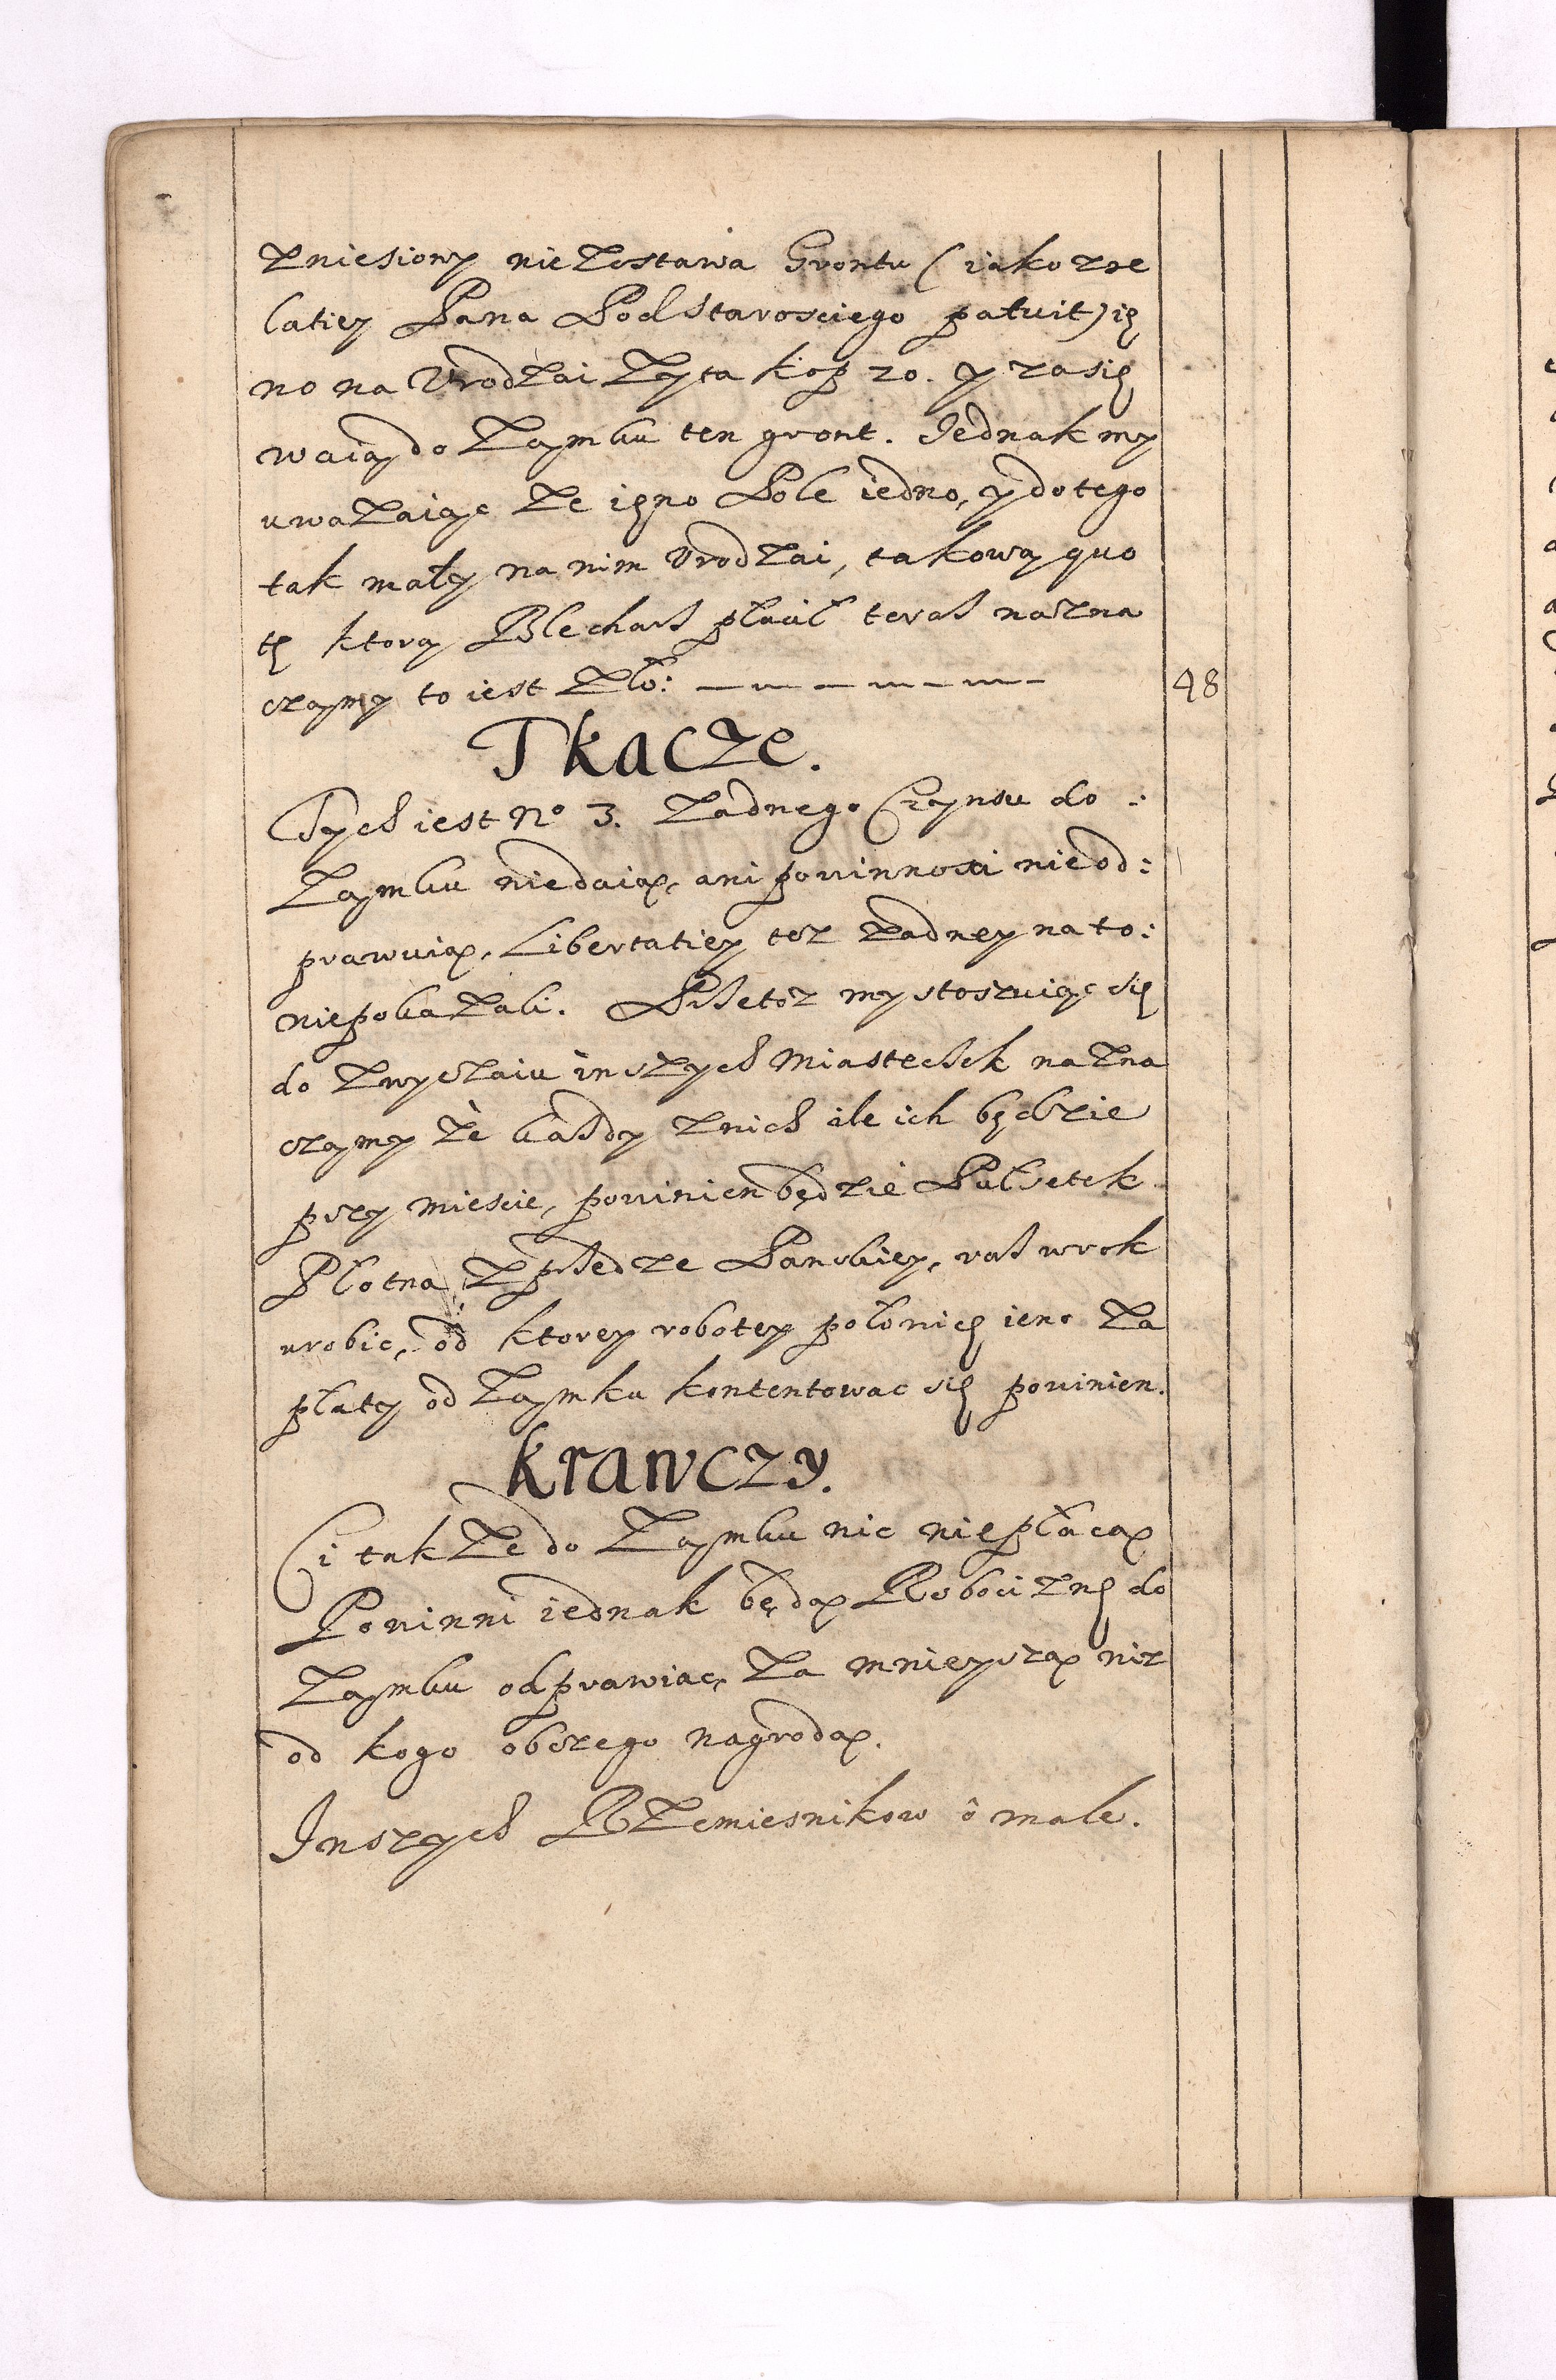 zniesiony nie zostawa Grontu (iako z re
latiey Pana Podstarosciego patuit) ię
no na Vrodzai Zyta kop 20. y zasię
waią do Zamku ten gront. Jednak my
uwazaiąc ze ięno Pole iedno, y do tego
tak mały na nim Vrodzai, takową quo
tę ktorą Blecharz płacił teraz nazna
czamy to iest Zło: 48
Tkacze.
Tych iest No 3. Zadnego Czynsu do :
Zamku niedaią, ani powinnosci nie od:
prawuią, Libertatiey tez zadney na to:
niepokazali. Przetoz my stosuiąc się
do zwyczaiu inszych Miasteczek nazna
czamy ze kazdy z nich ile ich będzie
przy miescie, powinien będzie Pułsetek
Płotna z przedze Panskiey, raz w rok
urobic, od ktorey robotey połowicę ieno za
płaty od Zamku kontentowac się powinien.
Krawczy.
Ci takze do Zamku nic niepłacą
Powinni iednak będą Robociznę do
Zamku odprawiac, Za mnieyszą niz
od kogo obczego nagrodą.
Inszych Rzemiesnikow o male.